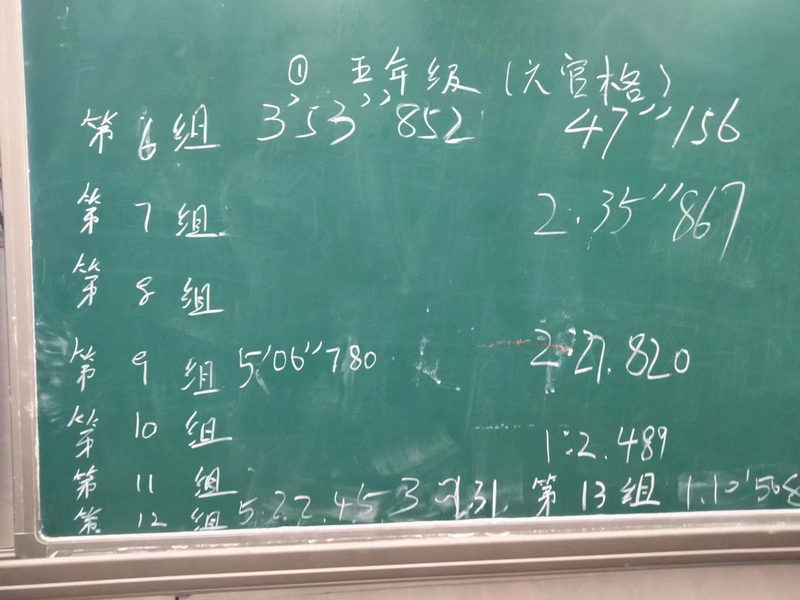 ① 五年级（六官格）
第6组 3'53''852 47''156
第7组 2.35''867
第8组
第9组 5'06''780 2:27.820
第10组
1:2.489
第11组
第12组 5.22.45.3 第13组 1.10'508